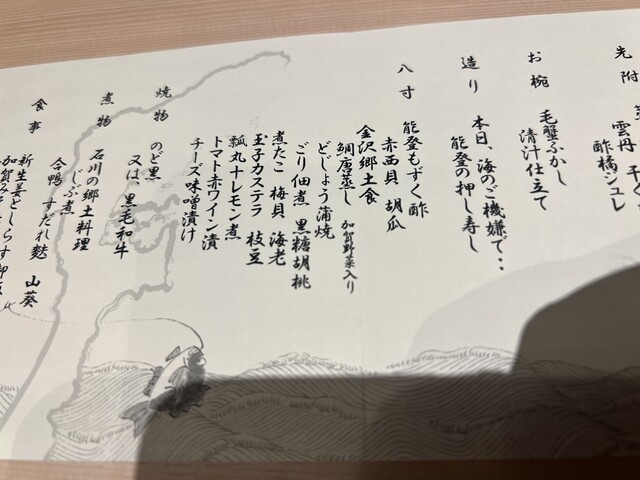 先附
雲丹
酢橘ジュレ
お椀
毛蟹ふかし
清汁仕立て
造り
本日、海のご機嫌で‥
能登の押し寿し
八寸
能登もずく酢
赤西貝 胡瓜
金沢郷土食
鯛唐蒸し 加賀野菜入り
どじょう蒲焼
ごり佃煮 黒糖胡桃
煮たこ 梅貝 海老
玉子カステラ 枝豆
瓢丸十レモン煮
トマト赤ワイン漬
チーズ味噌漬け
焼物
のど黒
又は、黒毛和牛
煮物
石川の郷土料理
じぶ煮
合鴨 すだれ麩 山葵
食事
新生姜としらす御飯
加賀みそ